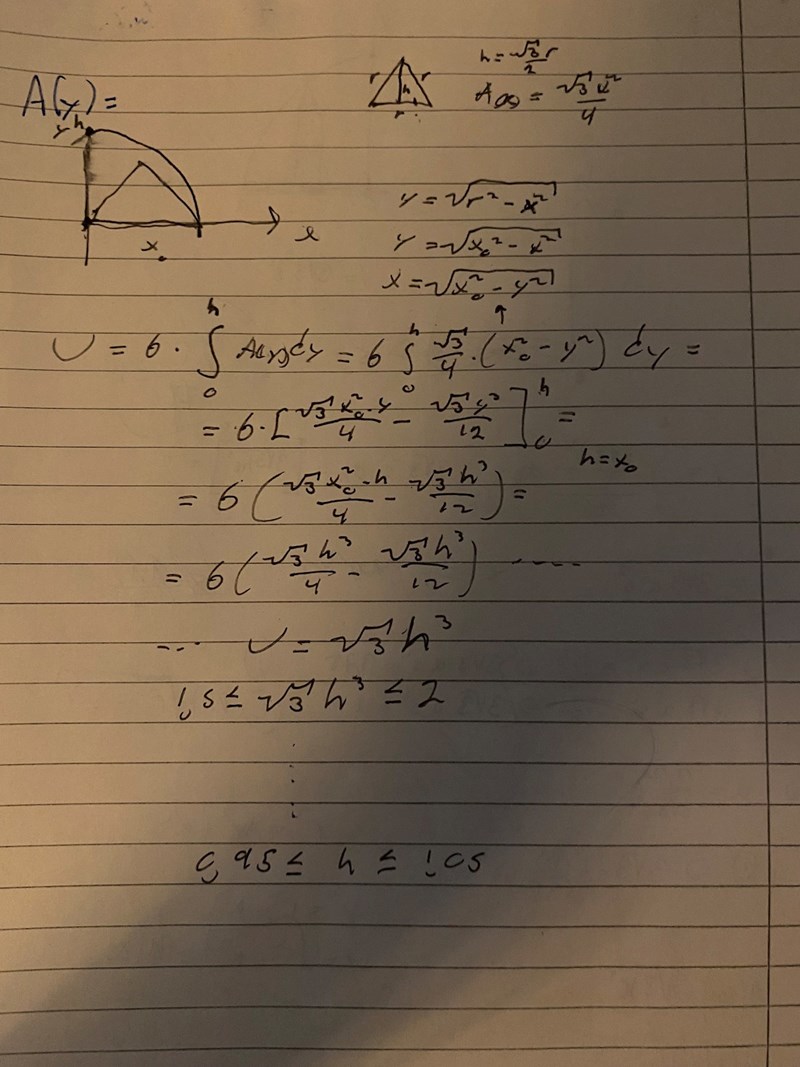 A(y) =
r r h r
h = √3/2 r
A(x) = √3 x²/4
y h
x₀
x
y = √(r² - x²)
y = √(x₀² - x²)
x = √(x₀² - y²)
↑
U = 6 · ∫₀ʰ A(y) dy = 6 ∫₀ʰ √3/4 · (x₀² - y²) dy =
= 6 · [√3 x₀² · y/4 - √3 y³/12]₀ʰ =
h = x₀
= 6 (√3 x₀² · h/4 - √3 h³/12) =
= 6 (√3 h³/4 - √3 h³/12) ....
... U = √3 h³
1,5 ≤ √3 h³ ≤ 2
0,95 ≤ h ≤ 1,05